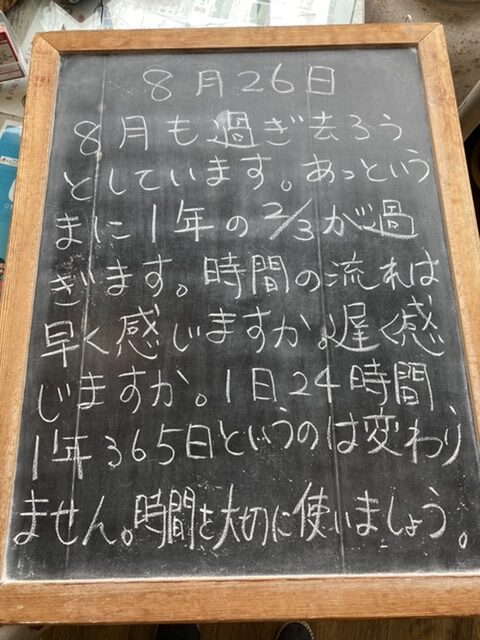 8月26日
8月も過ぎ去ろう
としています。あっという
まに1年の2/3が過
ぎます。時間の流れは
早く感いますか。遅く感
じますか。1日24時間
1年365日というのは変わり
ません。時間を大切に使いましょう。